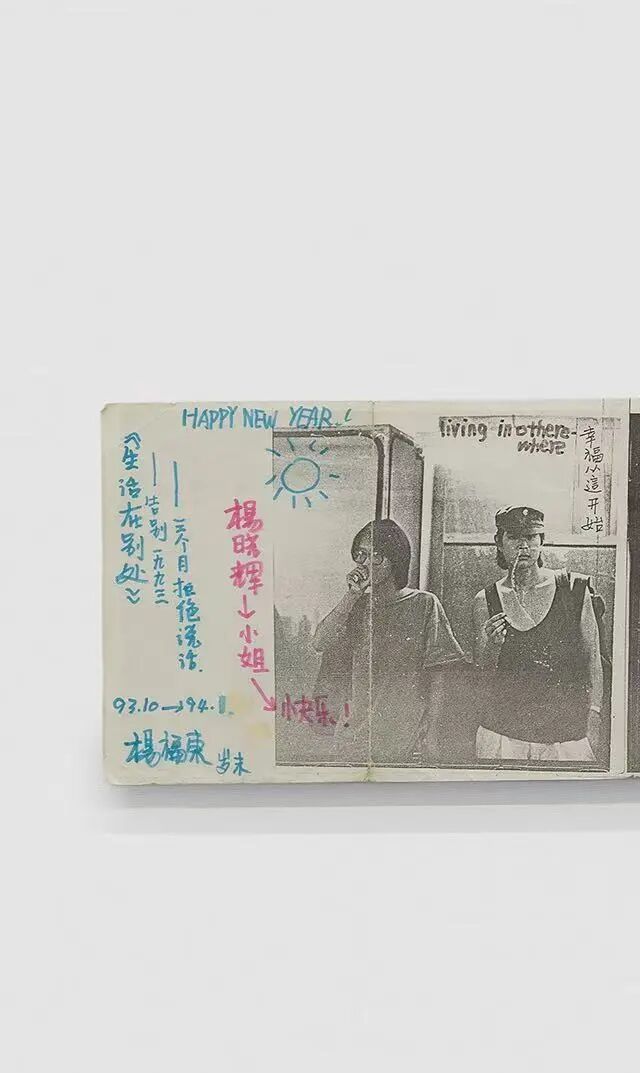 HAPPY NEW YEAR.!
《生活在别处》
——告别一九九三
——三个月拒绝说话.
93.10→94.1.
楊福東 岁末
楊晓辉→小姐→快乐!
living in othere-
where
幸福从這开始